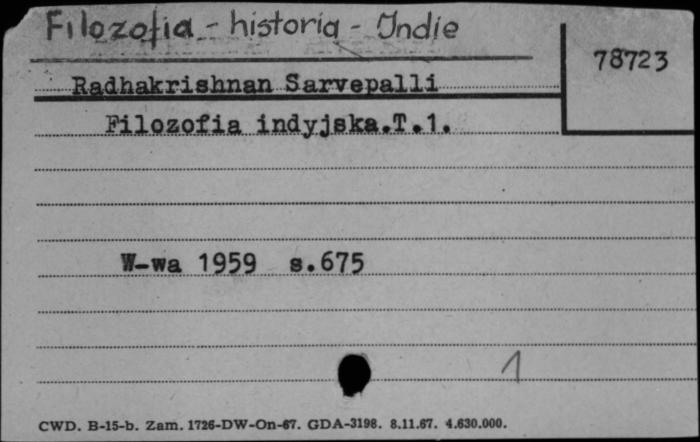 Filozofia - historia - Indie
78723
Radhakrishnan Sarvepalli
Filozofia indyjska.T.1.
W-wa 1959 s.675
1
CWD. B-15-b. Zam. 1726-DW-On-67. GDA-3198. 8.11.67. 4.630.000.